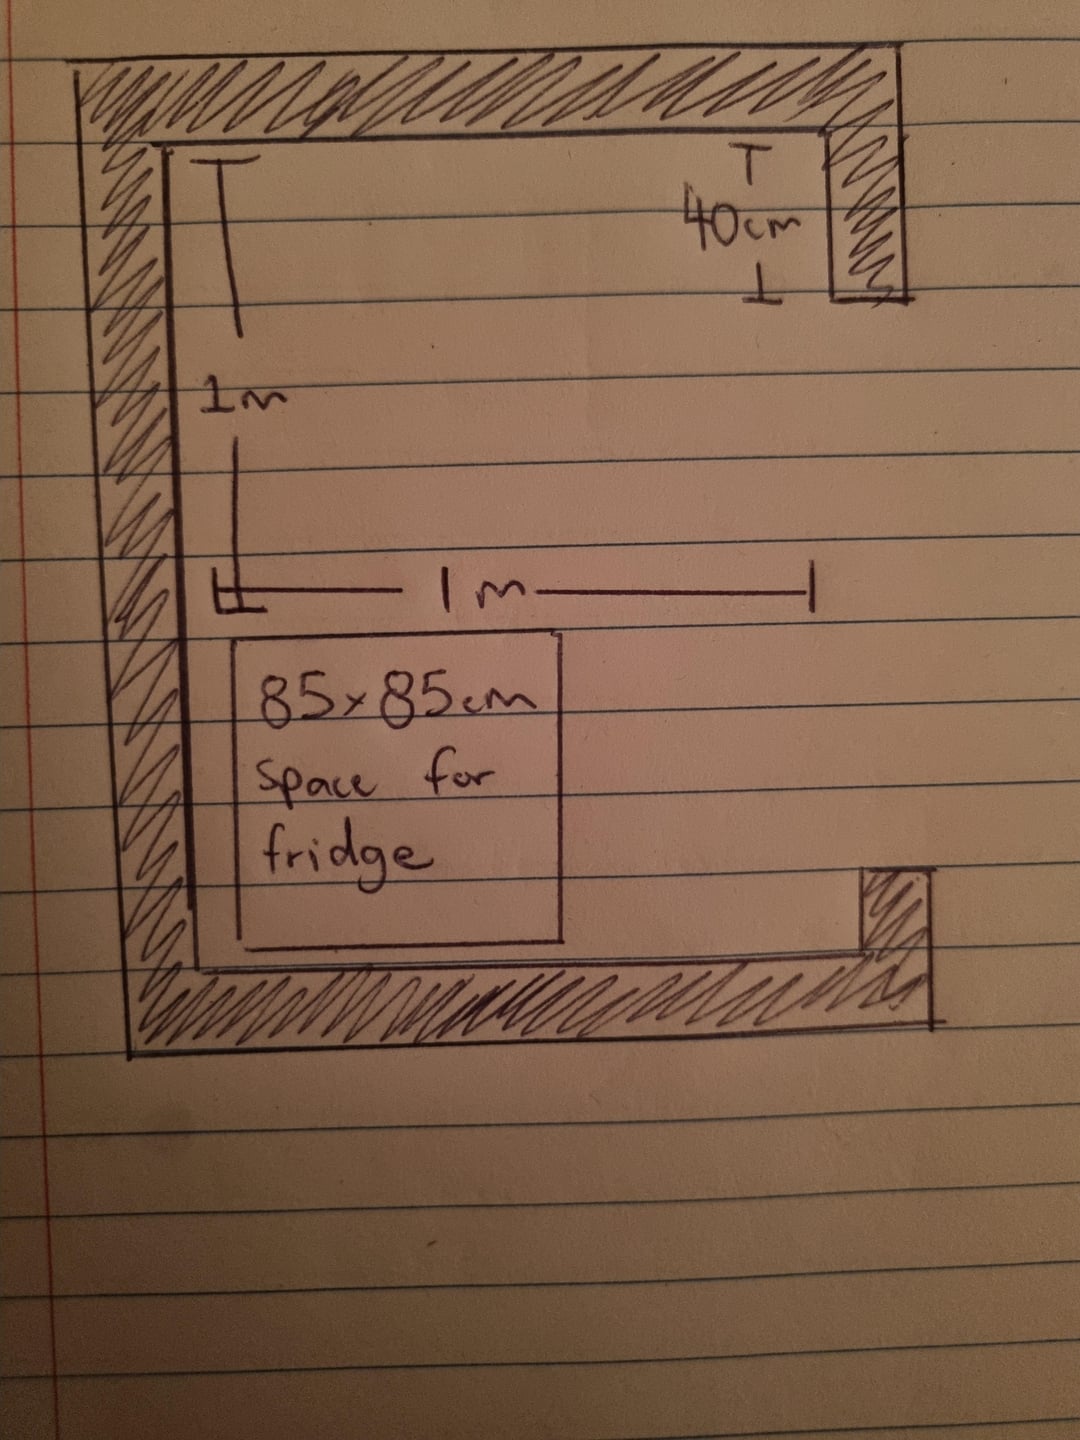 40cm
1m
1m
85x85cm
space for
fridge